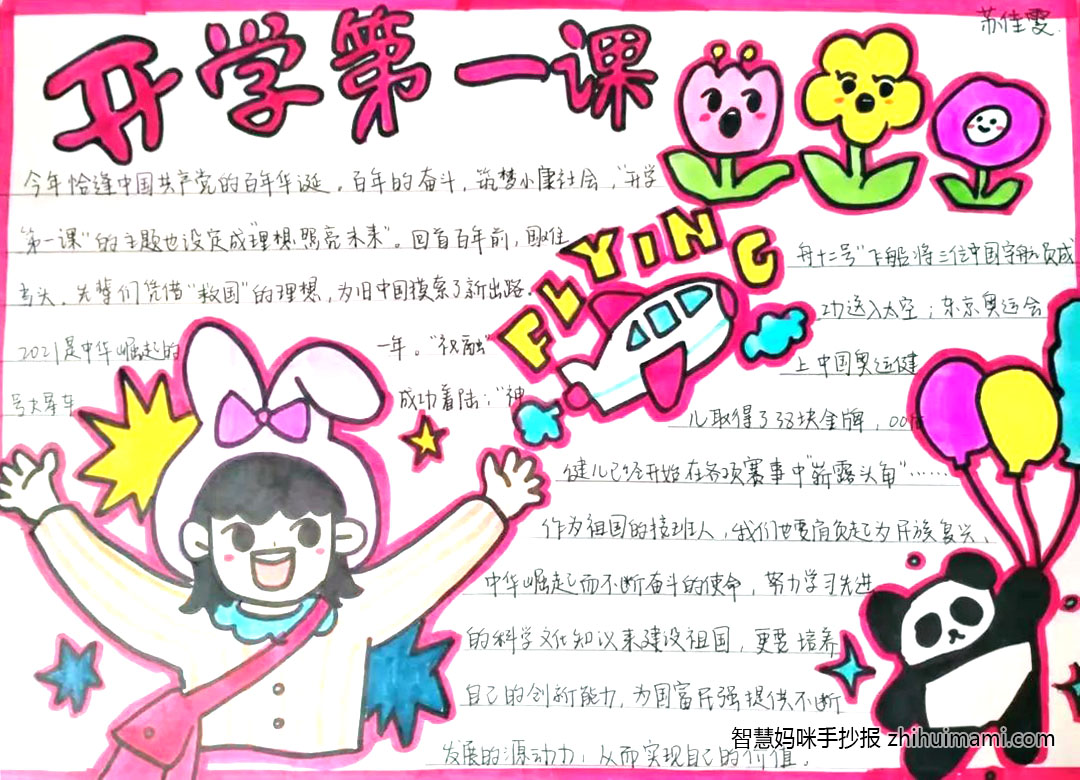 开学第一课
苏佳雯
今年恰逢中国共产党的百年华诞。百年的奋斗,筑梦小康社会,"开学
第一课"的主题也设定成"理想照亮未来"。回首百年前,国难
当头,先辈们凭借"救国"的理想,为旧中国摸索了新出路。
2021是中华崛起的一年。"祝融"
号火星车成功着陆;"神
FLYING
舟十二号"飞船将三位中国宇航员成
功送入太空;东京奥运会
上中国奥运健
儿取得了38块金牌,00后
健儿已经开始在各项赛事中"崭露头角"……
作为祖国的接班人,我们也要肩负起为民族复兴、
中华崛起而不断奋斗的使命,努力学习先进
的科学文化知识以来建设祖国,更要培养
自己的创新能力,为国富民强提供不断
发展的源动力,从而实现自己的价值。
智慧妈咪手抄报 zhihuimami.com